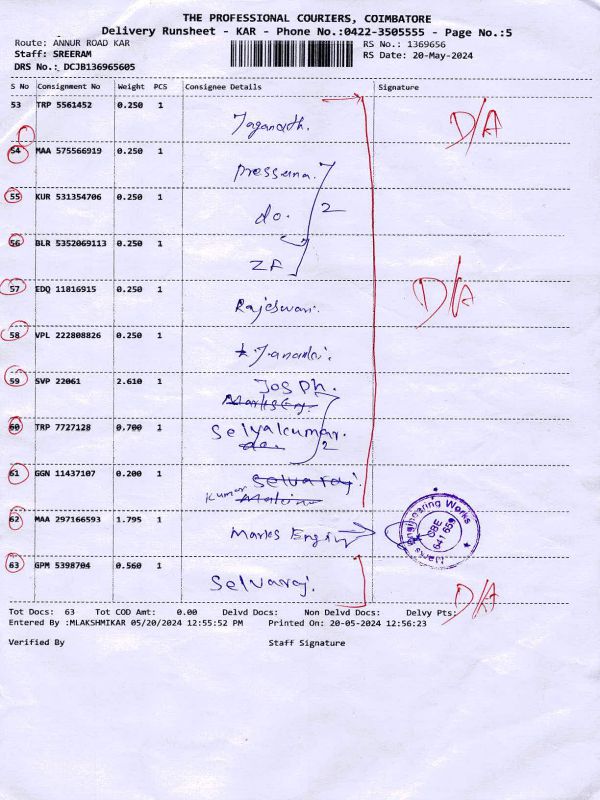 THE PROFESSIONAL COURIERS, COIMBATORE
Delivery Runsheet - KAR - Phone No.:0422-3505555 - Page No.:5
Route: ANNUR ROAD KAR
RS No.: 1369656
Staff: SREERAM
RS Date: 20-May-2024
DRS No.: DCJB136965605
S No Consignment No Weight PCS Consignee Details Signature
53 TRP 5561452 0.250 1 Jaganath. D/A
54 MAA 575566919 0.250 1 Pressena.
55 KUR 531354706 0.250 1 do. 2
56 BLR 5352069113 0.250 1 ZF
57 EDQ 11816915 0.250 1 Rajeswari. D/A
58 VPL 222808826 0.250 1
59 SVP 22061 2.610 1 JOSPh.
60 TRP 7727128 0.700 1 Selvakumar. 2
61 GGN 11437107 0.200 1 Selvaraj.
Kumar
62 MAA 297166593 1.795 1 Marks Engin
Marks Engineering Works
CBE
641 659
63 GPM 5398704 0.560 1 Selvaraj. D/A
Tot Docs: 63 Tot COD Amt: 0.00 Delvd Docs: Non Delvd Docs: Delvy Pts:
Entered By :MLAKSHMIKAR 05/20/2024 12:55:52 PM Printed On: 20-05-2024 12:56:23
Verified By Staff Signature